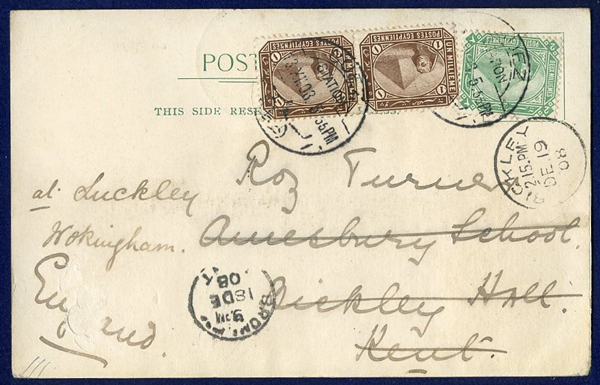 POST
THIS SIDE RESE
POSTES EGYPTIENNES
POSTES EGYPTIENNES
UN MILLIEME
1
1
5-5 PM
STATION
BICKLEY
2.15.PM
DE 19
08
Roy Turner
at Luckley
Wokingham.
Amesbury School.
Bickley Hall.
Kent.
England.
BROMLEY
9 PM
18 DE
08